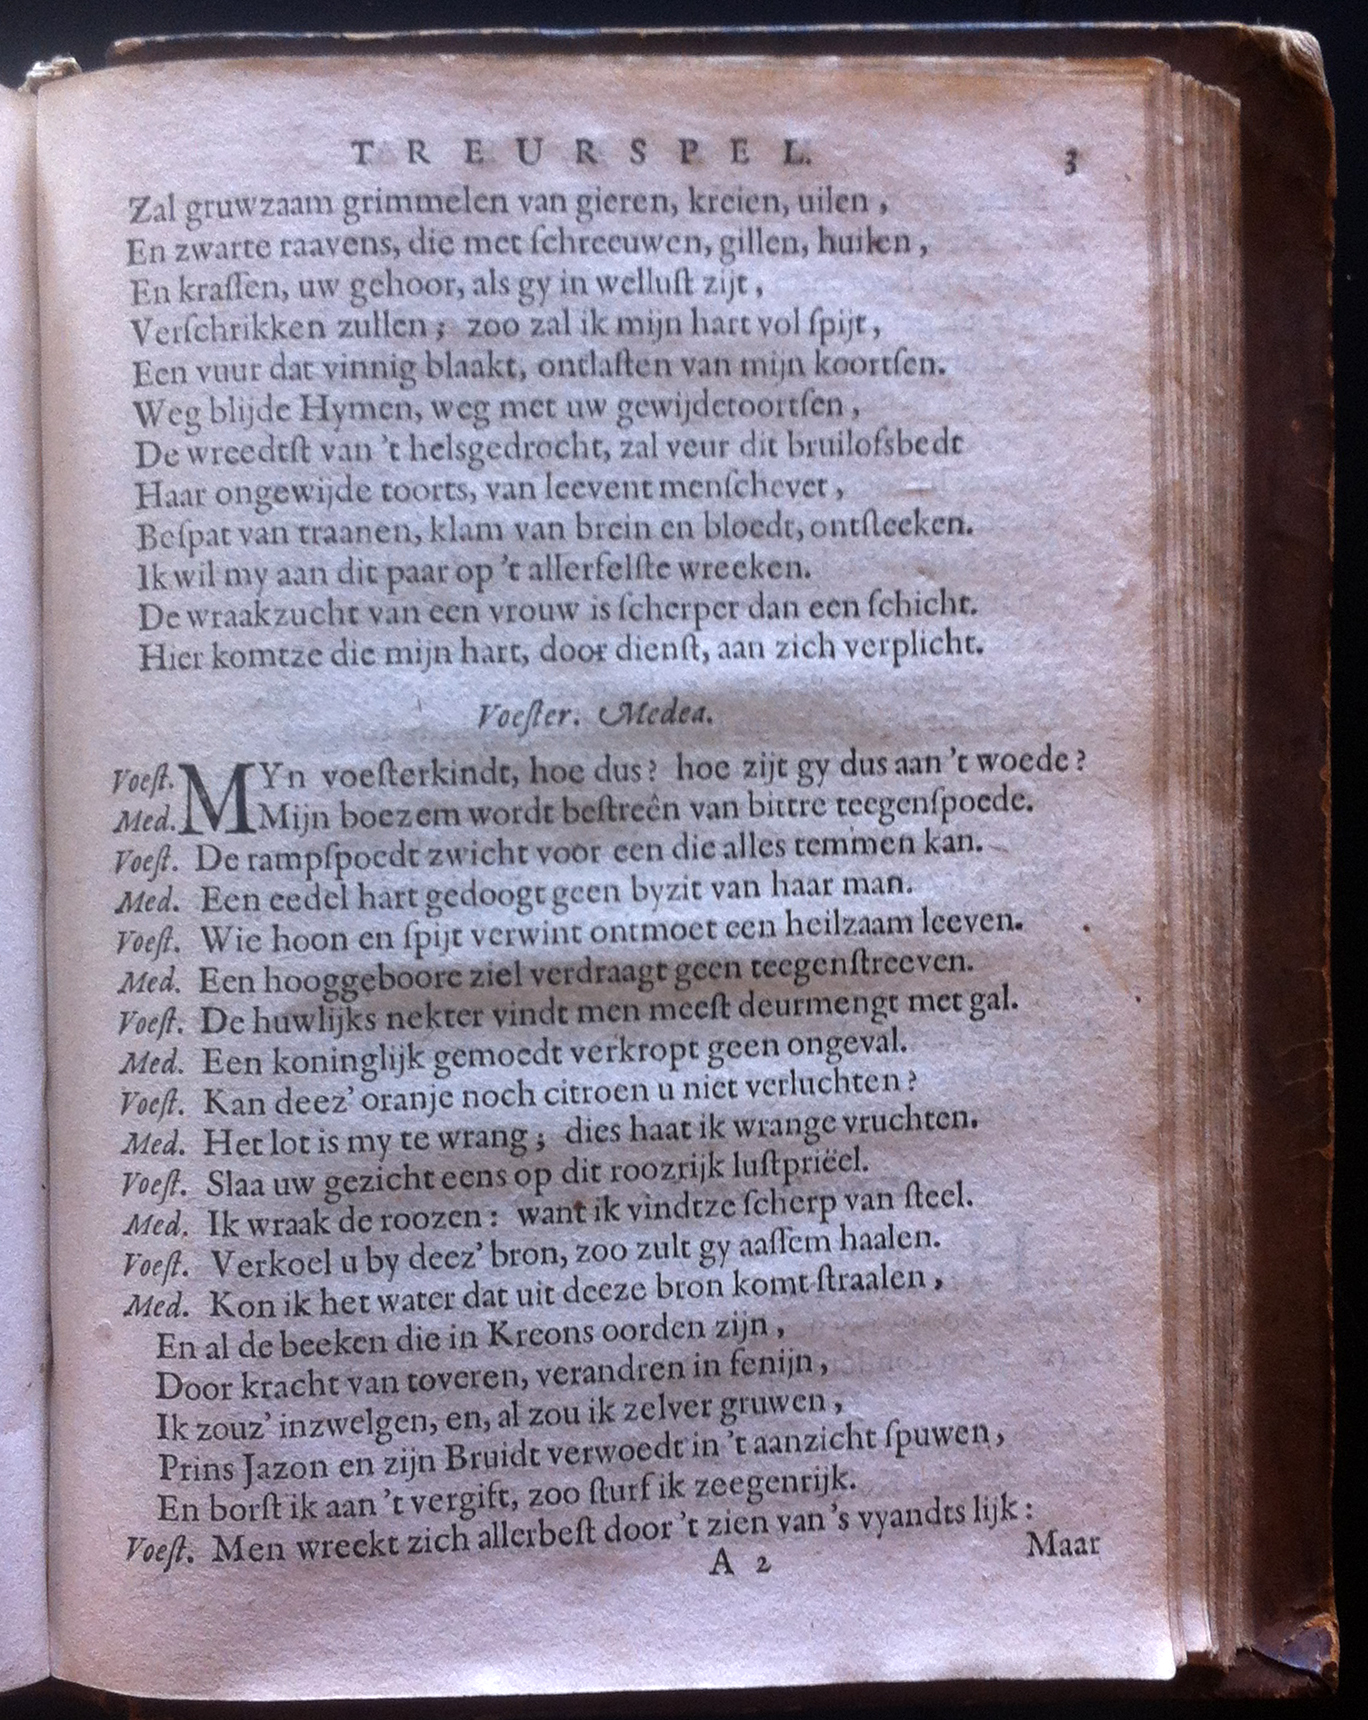 TREURSPEL. 3
Zal gruwzaam grimmelen van gieren, kreien, uilen,
En zwarte raavens, die met ſchreeuwen, gillen, huilen,
En kraſſen, uw gehoor, als gy in welluſt zijt,
Verſchrikken zullen; zoo zal ik mijn hart vol ſpijt,
Een vuur dat vinnig blaakt, ontlaſten van mijn koortſen.
Weg blijde Hymen, weg met uw gewijdetoortſen,
De wreedtſt van 't helsgedrocht, zal veur dit bruilofsbedt
Haar ongewijde toorts, van leevent menſchevet,
Beſpat van traanen, klam van brein en bloedt, ontſteeken.
Ik wil my aan dit paar op 't allerfelſte wreeken.
De wraakzucht van een vrouw is ſcherper dan een ſchicht.
Hier komtze die mijn hart, door dienſt, aan zich verplicht.
Voeſter. Medea.
Voeſt. MYn voeſterkindt, hoe dus? hoe zijt gy dus aan 't woede?
Med. Mijn boezem wordt beſtreên van bittre teegenſpoede.
Voeſt. De rampſpoedt zwicht voor een die alles temmen kan.
Med. Een eedel hart gedoogt geen byzit van haar man.
Voeſt. Wie hoon en ſpijt verwint ontmoet een heilzaam leeven.
Med. Een hooggeboore ziel verdraagt geen teegenſtreeven.
Voeſt. De huwlijks nekter vindt men meeſt deurmengt met gal.
Med. Een koninglijk gemoedt verkropt geen ongeval.
Voeſt. Kan deez' oranje noch citroen u niet verluchten?
Med. Het lot is my te wrang; dies haat ik wrange vruchten.
Voeſt. Slaa uw gezicht eens op dit roozrijk luſtpriëel.
Med. Ik wraak de roozen: want ik vindtze ſcherp van ſteel.
Voeſt. Verkoel u by deez' bron, zoo zult gy aaſſem haalen.
Med. Kon ik het water dat uit deeze bron komt ſtraalen,
En al de beeken die in Kreons oorden zijn,
Door kracht van toveren, verandren in fenijn,
Ik zouz' inzwelgen, en, al zou ik zelver gruwen,
Prins Jazon en zijn Bruidt verwoedt in 't aanzicht ſpuwen,
En borſt ik aan 't vergift, zoo ſturf ik zeegenrijk.
Voeſt. Men wreekt zich allerbeſt door 't zien van 's vyandts lijk:
A 2 Maar